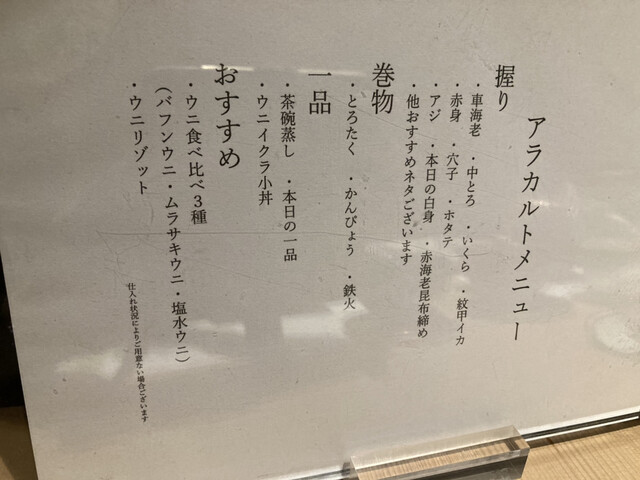 アラカルトメニュー
握り
・車海老 ・中とろ ・いくら ・紋甲イカ
・赤身 ・穴子 ・ホタテ
・アジ ・本日の白身 ・赤海老昆布締め
・他おすすめネタございます
巻物
・とろたく ・かんぴょう ・鉄火
一品
・茶碗蒸し ・本日の一品
・ウニイクラ小丼
おすすめ
・ウニ食べ比べ3種
(バフンウニ・ムラサキウニ・塩水ウニ)
・ウニリゾット
仕入れ状況によりご用意ない場合ございます